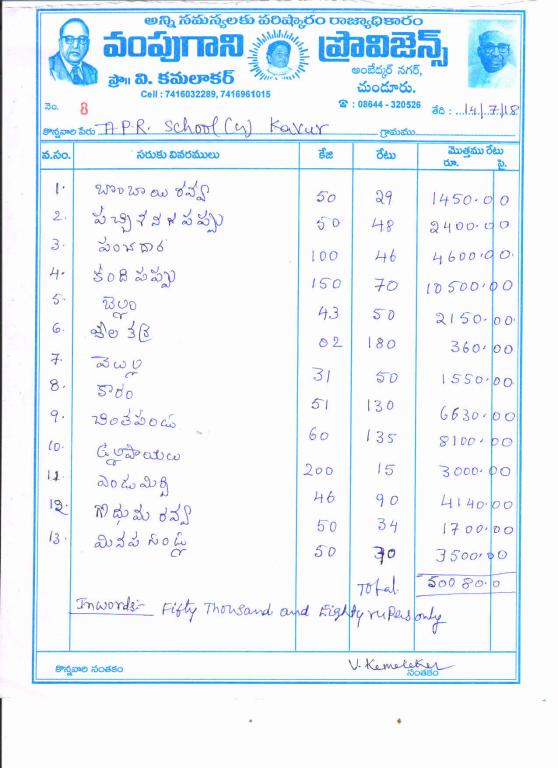 అన్ని సమస్యలకు పరిష్కారం రాజ్యాధికారం
వంపుగాని ప్రొవిజెన్స్
ప్రొ॥ వి. కమలాకర్
అంబేద్కర్ నగర్,
చుండూరు.
Cell : 7416032289, 7416961015
☎ : 08644 - 320526
నెం. 8
తేది : ...14/.7/18
కొన్నవారి పేరు A.P.R. School(G) Kavur గ్రామము
వ.సం. సరుకు వివరములు కేజి రేటు మొత్తము రేటు రూ. పై.
1. బొంబాయి రవ్వ 50 29 1450.00
2. పచ్చి శెనగపప్పు 50 48 2400.00
3. పంచదార 100 46 4600.00.
4. కంది పప్పు 150 70 10500.00
5. బెల్లం 43 50 2150.00.
6. జీలకర్ర 02 180 360.00
7. వెల్లుల్లి 31 50 1550.00.
8. కారం 51 130 6630.00
9. చింతపండు 60 135 8100.00
10. ఉల్లిపాయలు 200 15 3000.00
11. ఎండుమిర్చి 46 90 4140.00
12. గోధుమ రవ్వ 50 34 1700.00
13. మినప గుండ్లు 50 70 3500.00
Total. 50080.0
Inwords:- Fifty Thousand and Eighty rupees only
కొన్నవారి సంతకం V. Kamalakar సంతకం